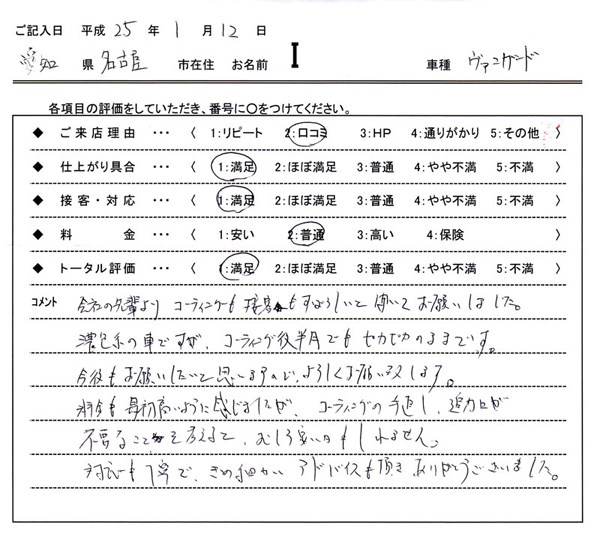 ご記入日 平成 25 年 1 月 12 日
愛知 県 名古屋 市在住 お名前 I 車種 ヴァンガード
各項目の評価をしていただき、番号に○をつけてください。
◆ ご来店理由 ・・・ 〈 1:リピート 2:口コミ 3:HP 4:通りがかり 5:その他 〉
◆ 仕上がり具合 ・・・ 〈 1:満足 2:ほぼ満足 3:普通 4:やや不満 5:不満 〉
◆ 接客・対応 ・・・ 〈 1:満足 2:ほぼ満足 3:普通 4:やや不満 5:不満 〉
◆ 料金 ・・・ 〈 1:安い 2:普通 3:高い 4:保険 〉
◆ トータル評価 ・・・ 〈 1:満足 2:ほぼ満足 3:普通 4:やや不満 5:不満 〉
コメント 会社の先輩より コーティングも接客もすばらしいと聞いてお願いしました。
濃色系の車ですが、コーティング後半月でもピカピカのままです。
今後もお願いしたいと思いますので、よろしくお願い致します。
料金も最初高いように感じましたが、コーティングの手直し、追加が
不要なことを考えると、むしろ安いかもしれません。
対応も丁寧で、きめ細かいアドバイスも頂きありがとうございました。